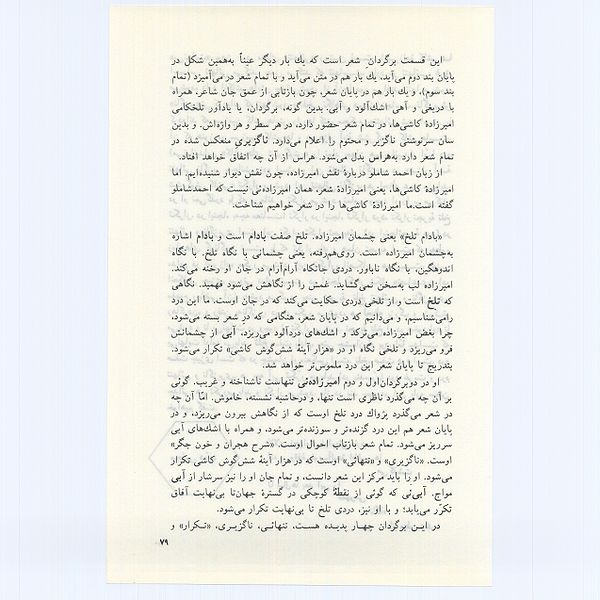 این قسمت برگردان ِ شعر است که یك بار دیگر عیناً به‌همین شکل در
پایان بند دوم می‌آید، یك بار هم در متن می‌آید و با تمام شعر در می‌آمیزد (تمام
بند سوم)، و یك بار هم در پایان شعر، چون بازتابی از عمق جان شاعر، همراه
با دریغی و آهی اشك‌آلود و آبی. بدین گونه، برگردان، یا یادآور تلخکامی
امیرزادهٔ کاشی‌ها، در تمام شعر حضور دارد، در هر سطر و هر واژه‌اش. و بدین
سان سرنوشتی ناگزیر و محتوم را اعلام می‌دارد. ناگزیری‌ِ منعکس شده در
تمام شعر دارد به‌هراس بدل می‌شود. هراس از آن چه اتفاق خواهد افتاد.
از زبان احمد شاملو دربارهٔ نقش امیرزاده، چون نقش دیوار شنیده‌ایم. اما
امیرزادهٔ کاشی‌ها، یعنی امیرزادهٔ شعر، همان امیرزاده‌ئی نیست که احمدشاملو
گفته است.ما امیرزادهٔ کاشی‌ها را در شعر خواهیم شناخت.
«بادام تلخ» یعنی چشمان امیرزاده. تلخ صفت بادام است و بادام اشاره
به‌چشمان امیرزاده است. روی‌هم‌رفته، یعنی چشمانی با نگاه تلخ. با نگاه
اندوهگین، با نگاه ناباور. دردی جانکاه آرام‌آرام در جان او رخنه می‌کند.
امیرزاده لب به‌سخن نمی‌گشاید. غمش را از نگاهش می‌شود فهمید. نگاهی
که تلخ است و از تلخی دردی حکایت می‌کند که در جان اوست. ما این درد
رامی‌شناسیم، و می‌دانیم که در پایان شعر، هنگامی که در شعر بسته می‌شود،
چرا بغض امیرزاده می‌ترکد و اشك‌های دردآلود می‌ریزد. آبی از چشمانش
فرو می‌ریزد و تلخی نگاه او در «هزار آینهٔ شش‌گوش کاشی» تکرار می‌شود.
بتدریج تا پایان شعر این درد ملموس‌تر خواهد شد.
او در دوبرگردان‌اول و دوم امیرزاده‌ئی تنهاست ناشناخته و غریب. گوئی
بر آن چه می‌گذرد ناظری است تنها، و درحاشیه نشسته، خاموش. امّا آن چه
در شعر می‌گذرد پژواك درد تلخ اوست که از نگاهش بیرون می‌ریزد، و در
پایان شعر هم این درد گزنده‌تر و سوزنده‌تر می‌شود، و همراه با اشك‌های آبی
سرریز می‌شود. تمام شعر بازتاب احوال اوست. «شرح هجران و خون جگر»
اوست. «ناگزیری» و «تنهائی» اوست که در هزار آینهٔ شش‌گوش کاشی تکرار
می‌شود. او را باید مرکز این شعر دانست، و تمام جان او را نیز سرشار از آبی
مواج. آبی‌ئی که گوئی از نقطهٔ کوچکی در گسترهٔ جهان‌تا بی‌نهایت آفاق
تکرّر می‌یابد؛ و با او نیز، دردی تلخ تا بی‌نهایت تکرار می‌شود.
در این برگردان چهار پدیده هست. تنهائی، ناگزیری، «تکرار» و
۷۹